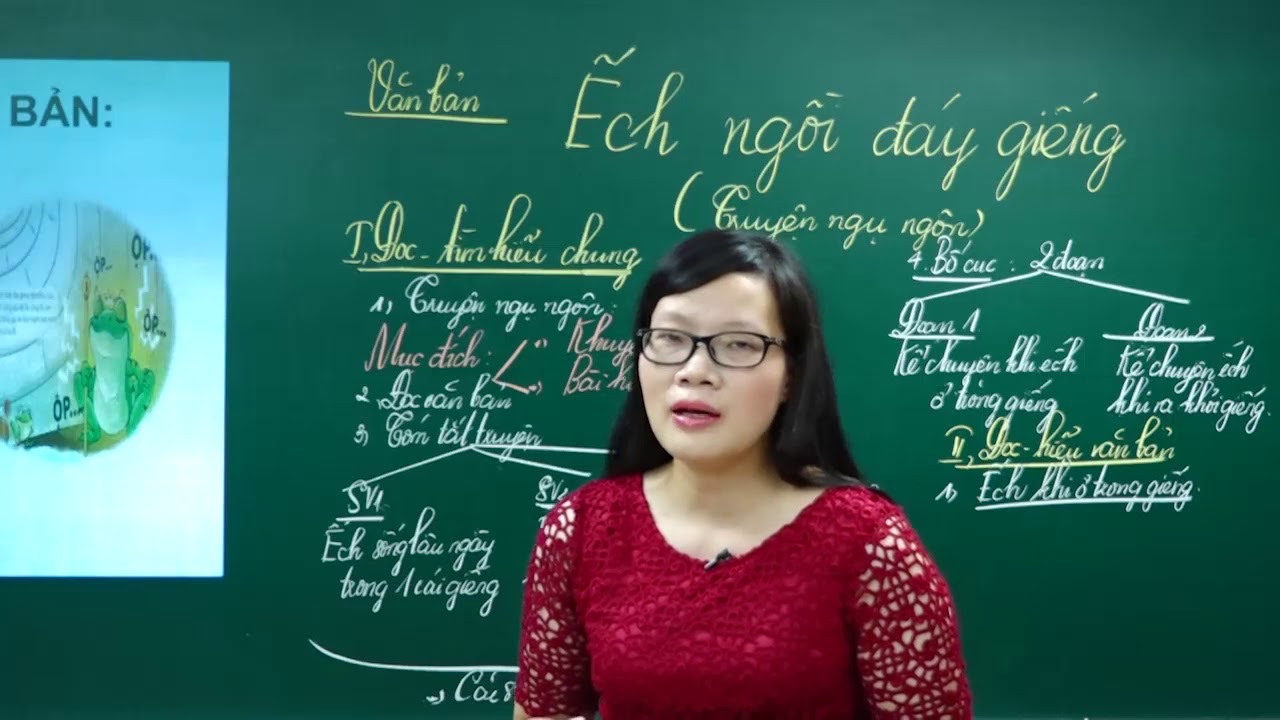 BẢN:
ỘP...
ỘP...
ỘP...
ỘP...
Văn bản
Ếch ngồi đáy giếng
(Truyện ngụ ngôn)
I, Đọc - tìm hiểu chung
1, Truyện ngụ ngôn:
Mục đích:
2, Đọc văn bản
3, Tóm tắt truyện
SV1
Ếch sống lâu ngày
trong 1 cái giếng
4. Bố cục: 2 đoạn
Đoạn 1
Kể chuyện khi ếch
ở trong giếng
Đoạn 2
Kể chuyện ếch
khi ra khỏi giếng.
II, Đọc - hiểu văn bản
1, Ếch khi ở trong giếng.